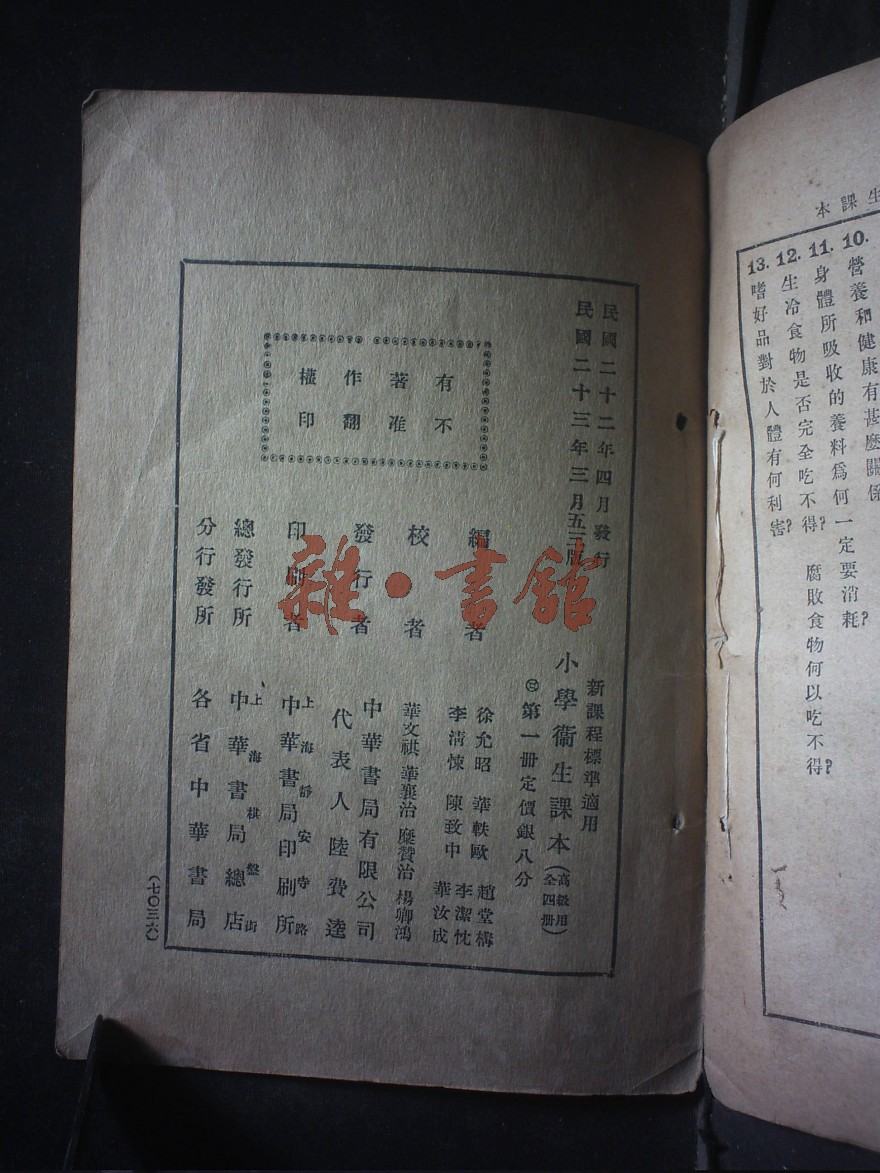 生課本
10. 營養和健康有甚麼關係
11. 身體所吸收的養料爲何一定要消耗?
12. 生冷食物是否完全吃不得? 腐敗食物何以吃不得?
13. 嗜好品對於人體有何利害?
民國二十二年四月發行
民國二十三年三月五三版
有著作權
不准翻印
新課程標準適用
小學衞生課本(高級用全四册)
第一册定價銀八分
編者
徐允昭 華軼歐 趙堂構
李清悚 陳致中 李潔忱
華汝成
校者
華文祺 華襄治 糜贊治 楊卿鴻
發行者
中華書局有限公司
代表人陸費逵
印刷者
上海靜安寺路
中華書局印刷所
總發行所
上海棋盤街
中華書局總店
分行發所
各省中華書局
(七〇三六)
雜·書館